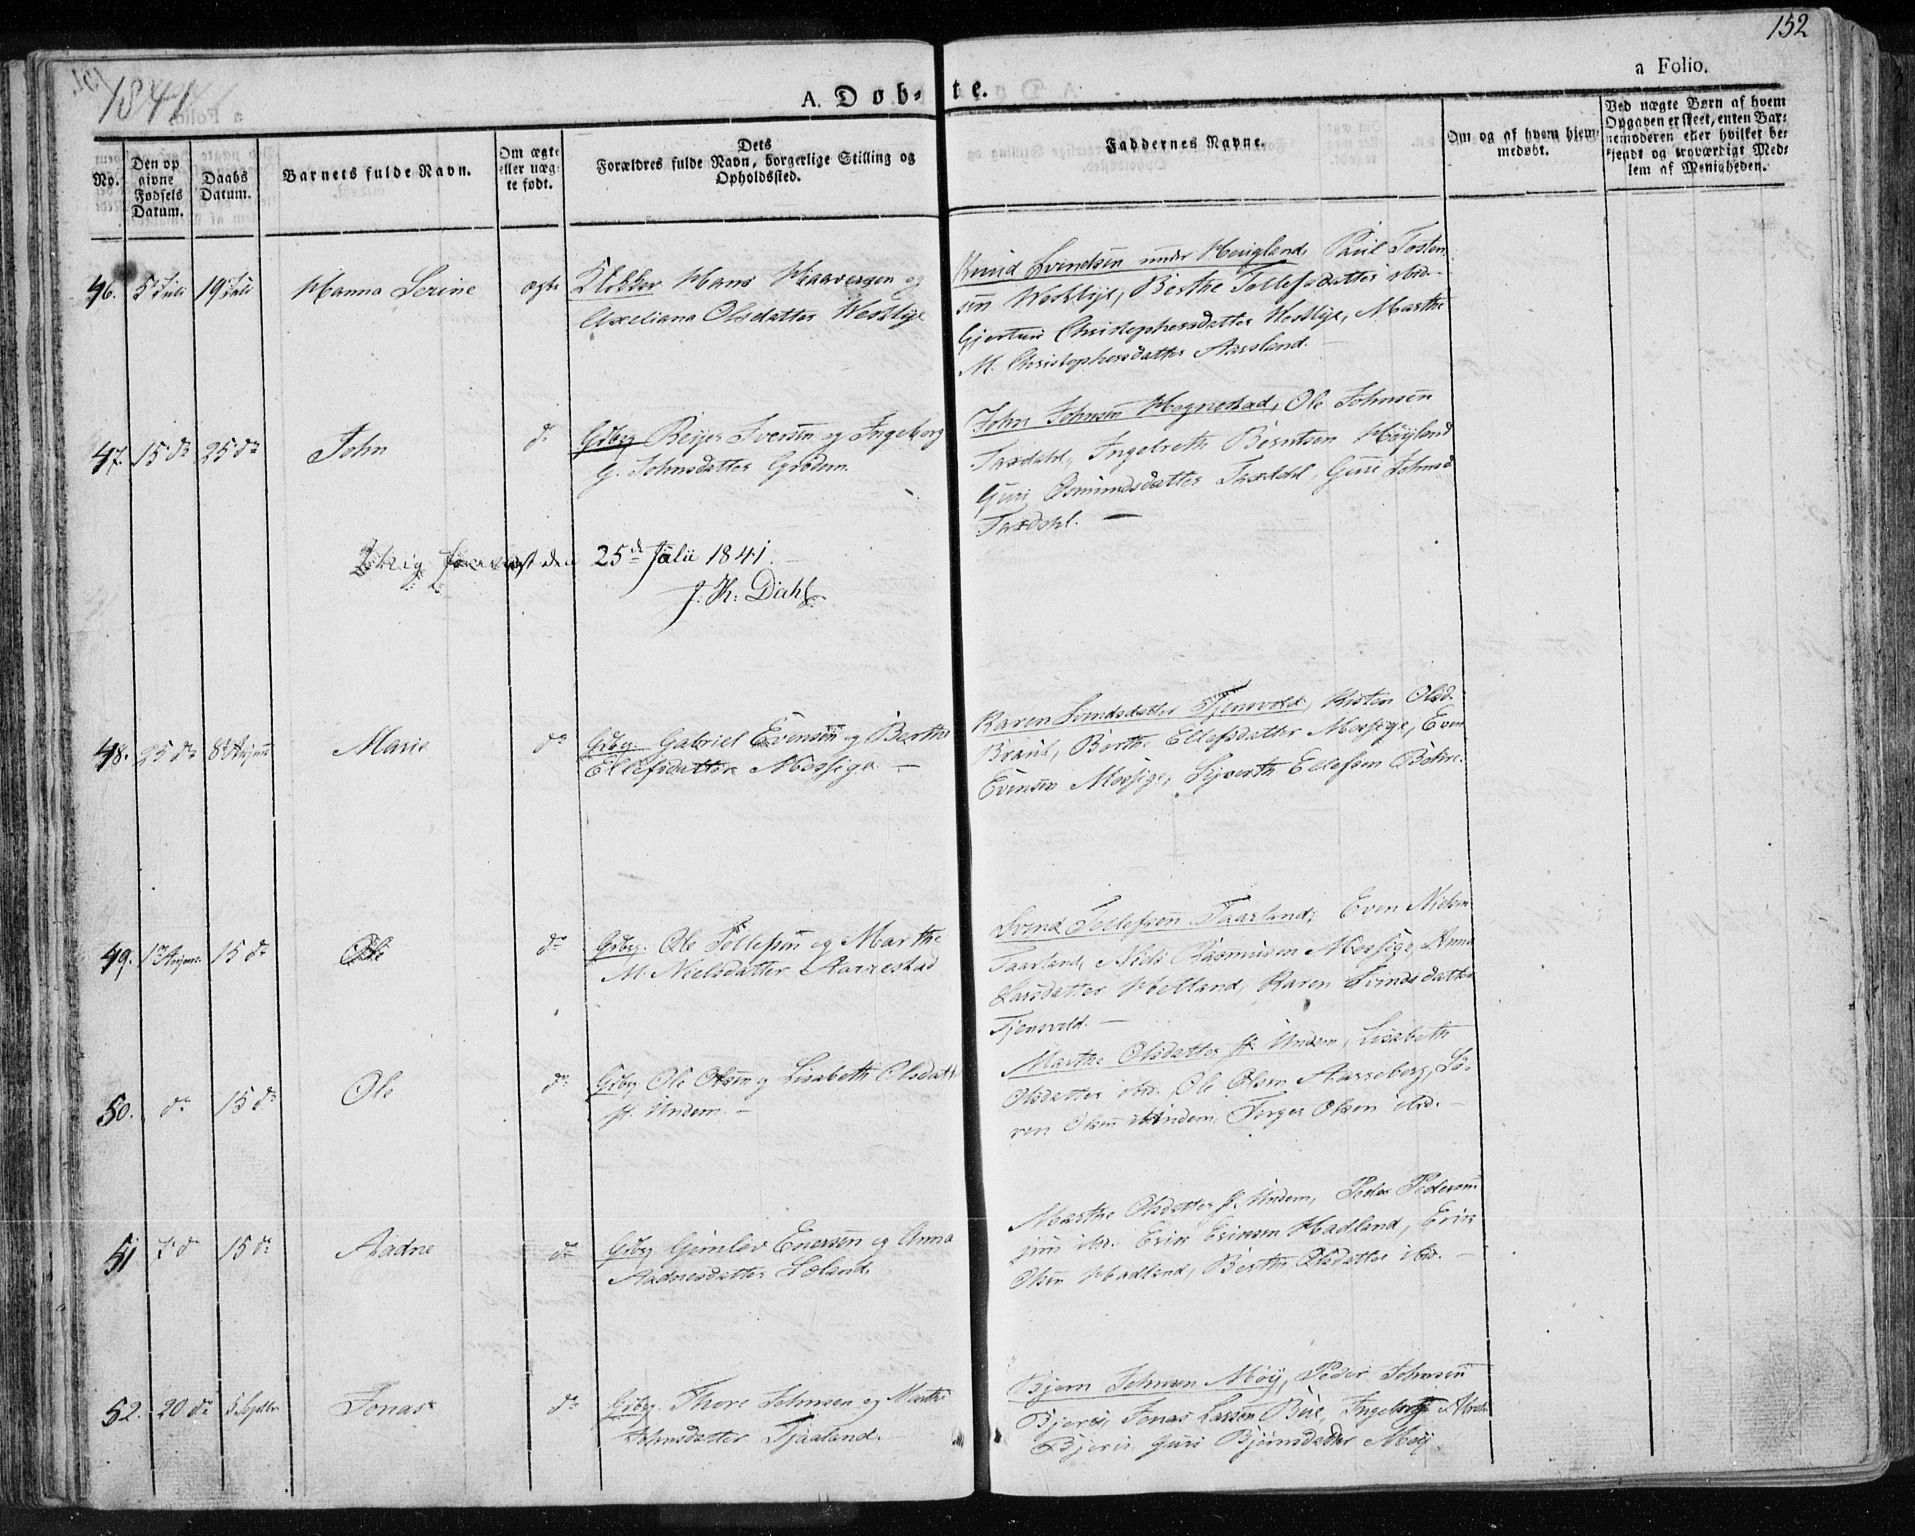 152
1841
a Folio.
A. Døb-
te.
No.
Den op
givne
Fødsels
Datum.
Daabs
Datum.
Barnets fulde Navn.
Om ægte
eller uæg-
te født.
Dets
Forældres fulde Navn, borgerlige Stilling og
Opholdssted.
Faddernes Navne.
Om og af hvem hjem-
medøbt.
Ved uægte Børn af hvem
Opgaven er skeet, enten Bar-
nemoderen eller hvilket be-
kjendt og troværdigt Med-
lem af Menigheden.
46. 5 Juli 19 Juli Hanna Serine ægte Klokker Hans Haaversen og
Axeliana Olsdatter Westlye
Knud Svendsen under Houglend, Paul Tosten
sen Westlye, Berthe Tollefsdatter ibid.
Gjertrui Christophersdatter Westlye, Marthe
M. Christophersdatter Aarsland.
47. 15 do 25 do John do Gdbr. Reijer Iversen og Ingeborg
G. Johnsdatter Grødem.
John Johnsen Hognestad, Ole Johnsen
Taxdahl, Ingebreth Berntsen Høyland
Guri Osmundsdatter Taxdahl, Guri Johnsd
Taxdahl. —
25de Julii 1841.
J. K. Dahl
48. 25 do 8 August Marie do Gdbr. Gabriel Evensen og Berthe
Ellefsdatter Mossige. —
Karen Svendsdatter Tjensvold, Kisten Olsd.
Braut, Berthe Ellefsdatter Mossige, Even
Evensen Mossige, Sivert Ellefsen Bøkre.
49. 1 August 15 do Ole do Gdbr. Ole Tollefsen og Marthe
M. Nielsdatter Aarrestad
Svend Tollefsen Taarland, Even Nielsen
Taarland, Niels Rasmussen Mossige, Anna
Larsdatter Helland, Karen Svendsdatter
Tjensvold. —
50. do 15 do Ole do Gdbr. Ole Olsen og Lisabeth Olsdatter
st. Undem. —
Marthe Olsdatter st. Undem, Lisabeth
Olsdatter ibd. Ole Olsen Aasseberg, Sø-
ren Olsen Undem, Torger Olsen ibd. —
51 7 do 15 do Aadne do Gdbr. Gunlev Enersen og Anna
Aadnesdatter Loland.
Marthe Olsdatter st. Undem, Peder Pedersen
ibd. Erik Eriksen Hadland, Erik
Olsen Hadland, Berthe Olsdatter ibd. —
52. 20 do 5 Septbr Jonas do Gdbr. Thore Johnsen og Marthe
Johnsdatter Tjaaland.
Bjørn Johnsen Møy, Peder Johnsen
Bjerei Jonas Lassen Bue, Ingeborg
Bjerei Guri Bjørnsdatter Møy.